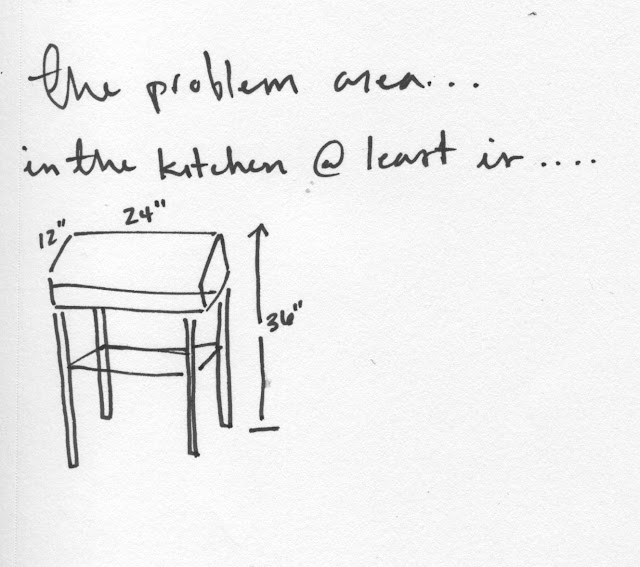 the problem area...
in the kitchen @ least is....
12" 24"
36"